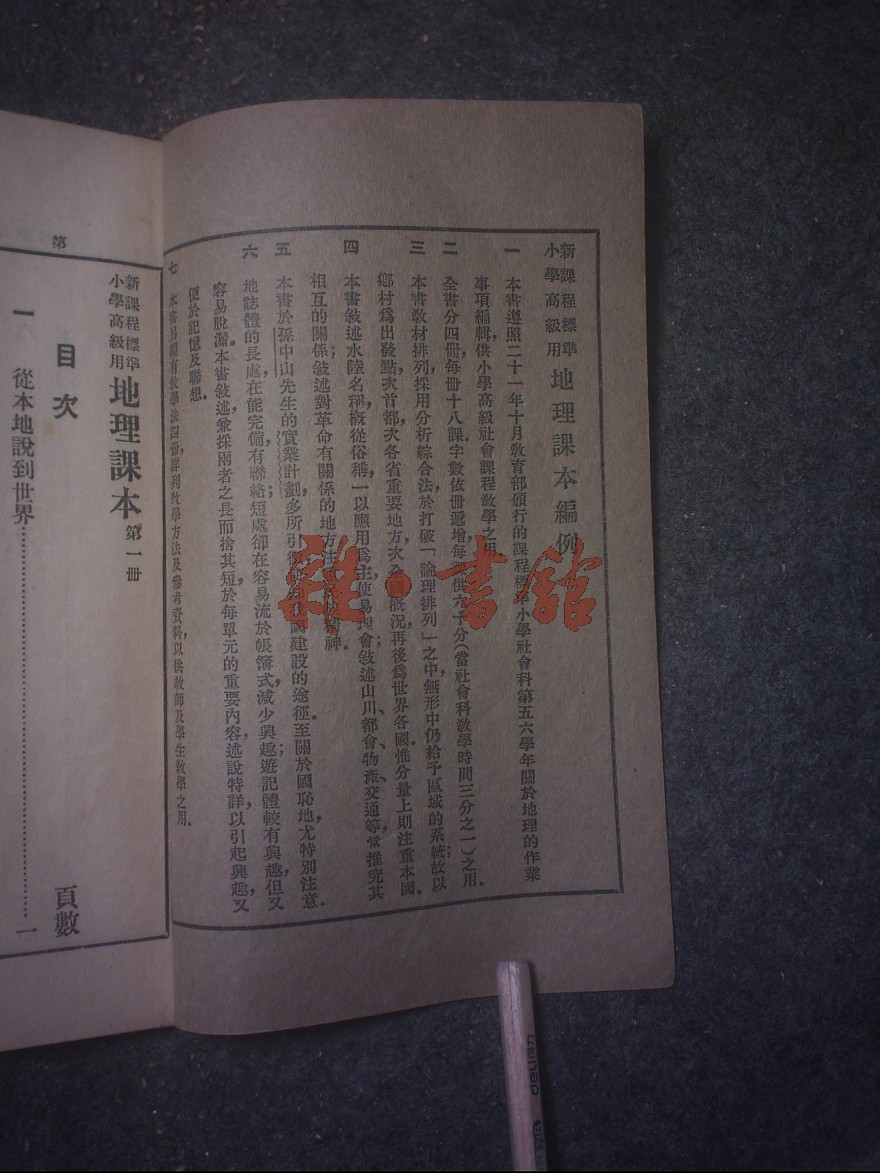 新課程標準
小學高級用
地理課本編例
一 本書遵照二十一年十月敎育部頒行的課程標準小學社會科第五六學年關於地理的作業
事項編輯,供小學高級社會課程敎學之用.
二 全書分四冊,每冊十八課,字數依冊遞增,每課供六十分(當社會科敎學時間三分之一)之用.
三 本書敎材排列,採用分析綜合法,於打破「論理排列」之中,無形中仍給予區域的系統;故以
鄉村爲出發點,次首都,次各省重要地方,次全國槪況,再後爲世界各國;惟分量上則注重本國.
四 本書敍述水陸名稱,槪從俗稱,一以應用爲主,使易理會;敍述山川、都會、物產、交通等,常推究其
相互的關係;敍述對革命有關係的地方,注 精神.
五 本書於孫中山先生的實業計劃,多所引 建設的途徑.至關於國恥地,尤特別注意.
六 地誌體的長處在能完備有聯絡;短處卻在容易流於帳簿式,減少興趣;遊記體較有興趣,但又
容易脫漏.本書敍述兼採兩者之長而捨其短;於每單元的重要內容,述說特詳,以引起興趣,又
便於記憶及聯想.
七 本書另編有敎學法四冊,詳列敎學方法及參考資料,以供敎師及學生敎學之用.
雜·書館
第
新課程標準
小學高級用
地理課本 第一冊
目次
頁數
一 從本地說到世界……………………一
deli